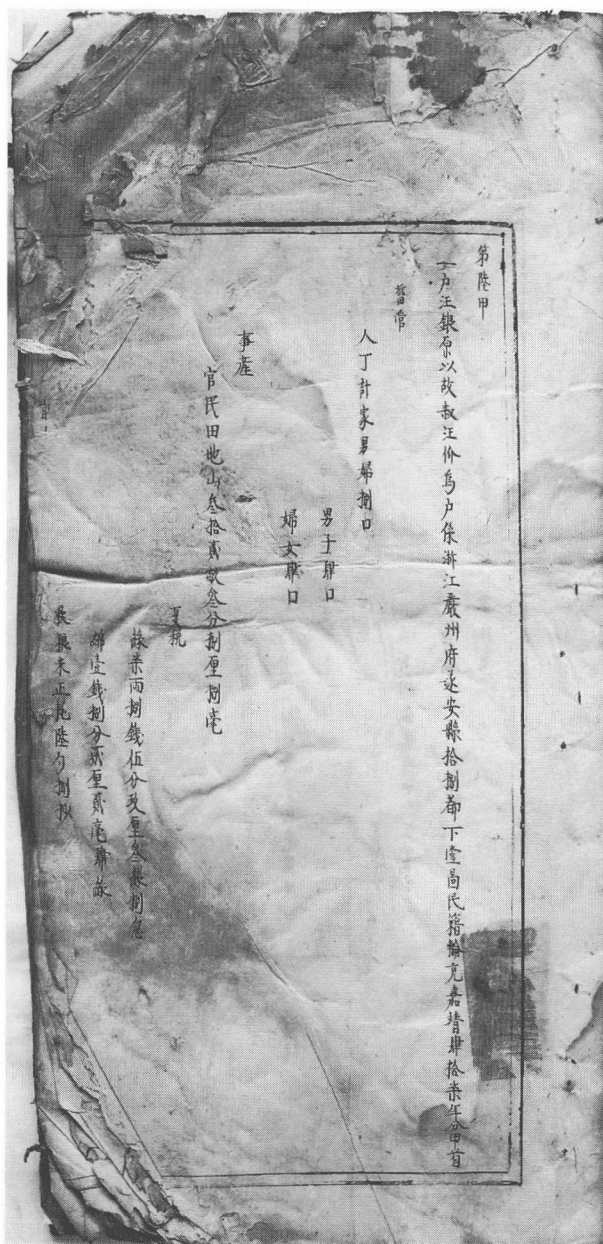 第陸甲
一户汪銀原以故叔汪价為户係浙江嚴州府遂安縣拾捌都下壹啚民籍輪充嘉靖肆拾柒年分甲首
舊管
人丁計家男婦捌口
男子肆口
婦女肆口
事產
官民田地山叁拾貳畝叁分捌厘捌毫
夏稅
絲柒兩捌錢伍分玖厘叁絲捌忽
綿壹錢捌分貳厘貳毫肆絲
農桑米正耗陸勺捌抄